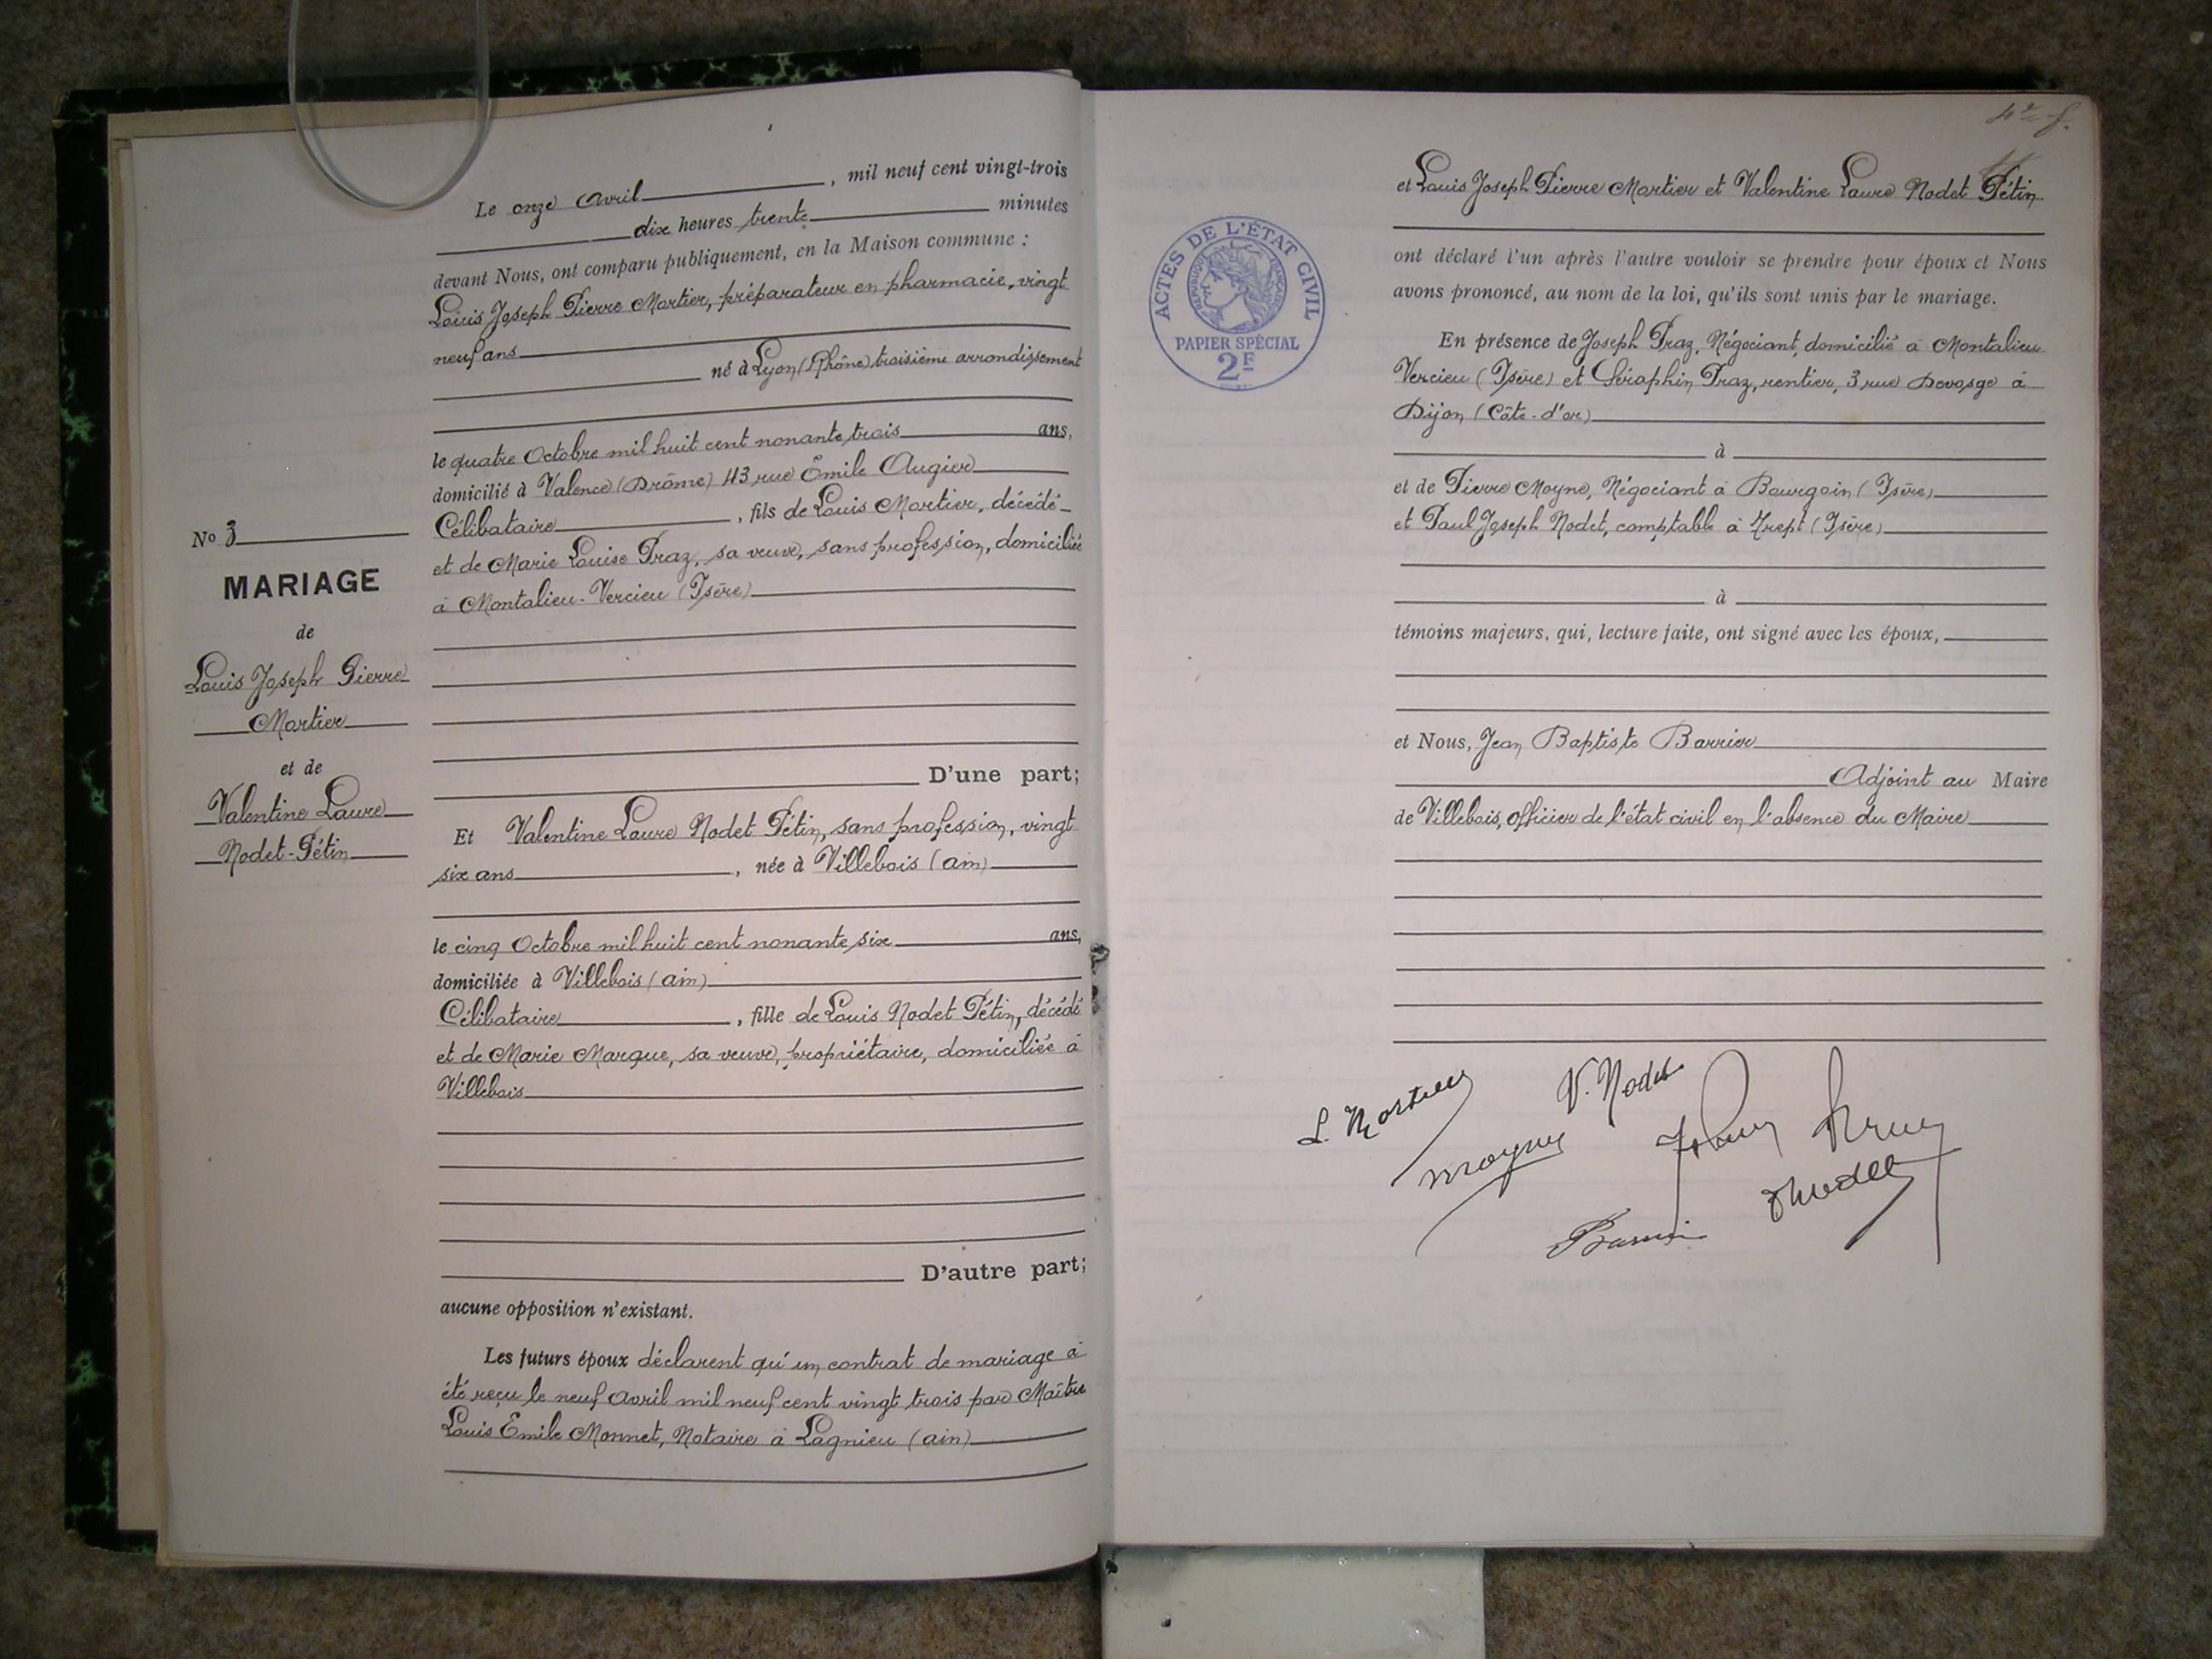 Le onze Avril, mil neuf cent vingt-trois
dix heures trente minutes
devant Nous, ont comparu publiquement, en la Maison commune :
Louis Joseph Pierre Mortier, préparateur en pharmacie, vingt
neuf ans
né à Lyon (Rhône) troisième arrondissement
le quatre Octobre mil huit cent nonante trois ans,
domicilié à Valence (Drôme) 43 rue Émile Augier
Célibataire, fils de Louis Mortier, décédé
et de Marie Louise Praz, sa veuve, sans profession, domiciliée
à Montalieu-Vercieu (Isère)
D'une part;
Et Valentine Laure Nodet Pétin, sans profession, vingt
six ans, née à Villebois (ain)
le cinq Octobre mil huit cent nonante six ans,
domiciliée à Villebois (ain)
Célibataire, fille de Louis Nodet Pétin, décédé
et de Marie Margue, sa veuve, propriétaire, domiciliée à
Villebois
D'autre part;
aucune opposition n'existant.
Les futurs époux déclarent qu'un contrat de mariage à
été reçu le neuf Avril mil neuf cent vingt trois par Maître
Louis Emile Monnet, Notaire à Lagnieu (ain)
No 3
MARIAGE
de
Louis Joseph Pierre
Mortier
et de
Valentine Laure
Nodet-Pétin
ACTES DE L'ÉTAT CIVIL
RÉPUBLIQUE FRANÇAISE
PAPIER SPÉCIAL
2F
et Louis Joseph Pierre Mortier et Valentine Laure Nodet Pétin
ont déclaré l'un après l'autre vouloir se prendre pour époux et Nous
avons prononcé, au nom de la loi, qu'ils sont unis par le mariage.
En présence de Joseph Praz, Négociant, domicilié à Montalieu
Vercieu (Isère) et Séraphin Praz, rentier, 3 rue Devosge à
Dijon (Côte-d'or)
à
et de Pierre Moyne, Négociant à Bourgoin (Isère)
et Paul Joseph Nodet, comptable à Trept (Isère)
à
témoins majeurs, qui, lecture faite, ont signé avec les époux,
et Nous, Jean Baptiste Barrier
Adjoint au Maire
de Villebois, officier de l'état civil en l'absence du Maire
L. Mortier
V. Nodet
Moyne